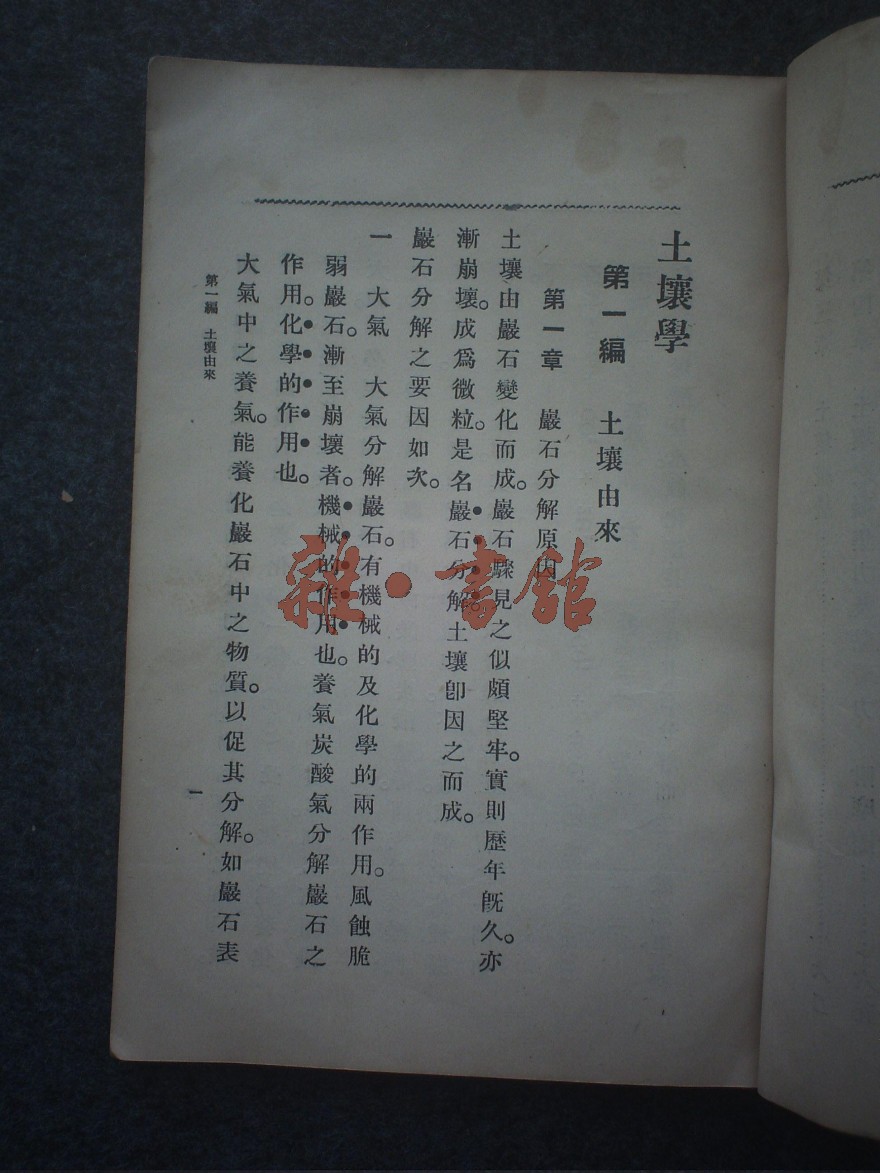 土壤學
第一編　土壤由來
第一章　巖石分解原因
土壤由巖石變化而成。巖石驟見之似頗堅牢。實則歷年旣久。亦
漸崩壞。成爲微粒。是名巖石分解。土壤卽因之而成。
巖石分解之要因如次。
一　大氣　大氣分解巖石。有機械的及化學的兩作用。風蝕脆
弱巖石。漸至崩壞者。機械的作用也。養氣炭酸氣分解巖石之
作用。化學的作用也。
大氣中之養氣。能養化巖石中之物質。以促其分解。如巖石表
第一編　土壤由來
一
雜·書館